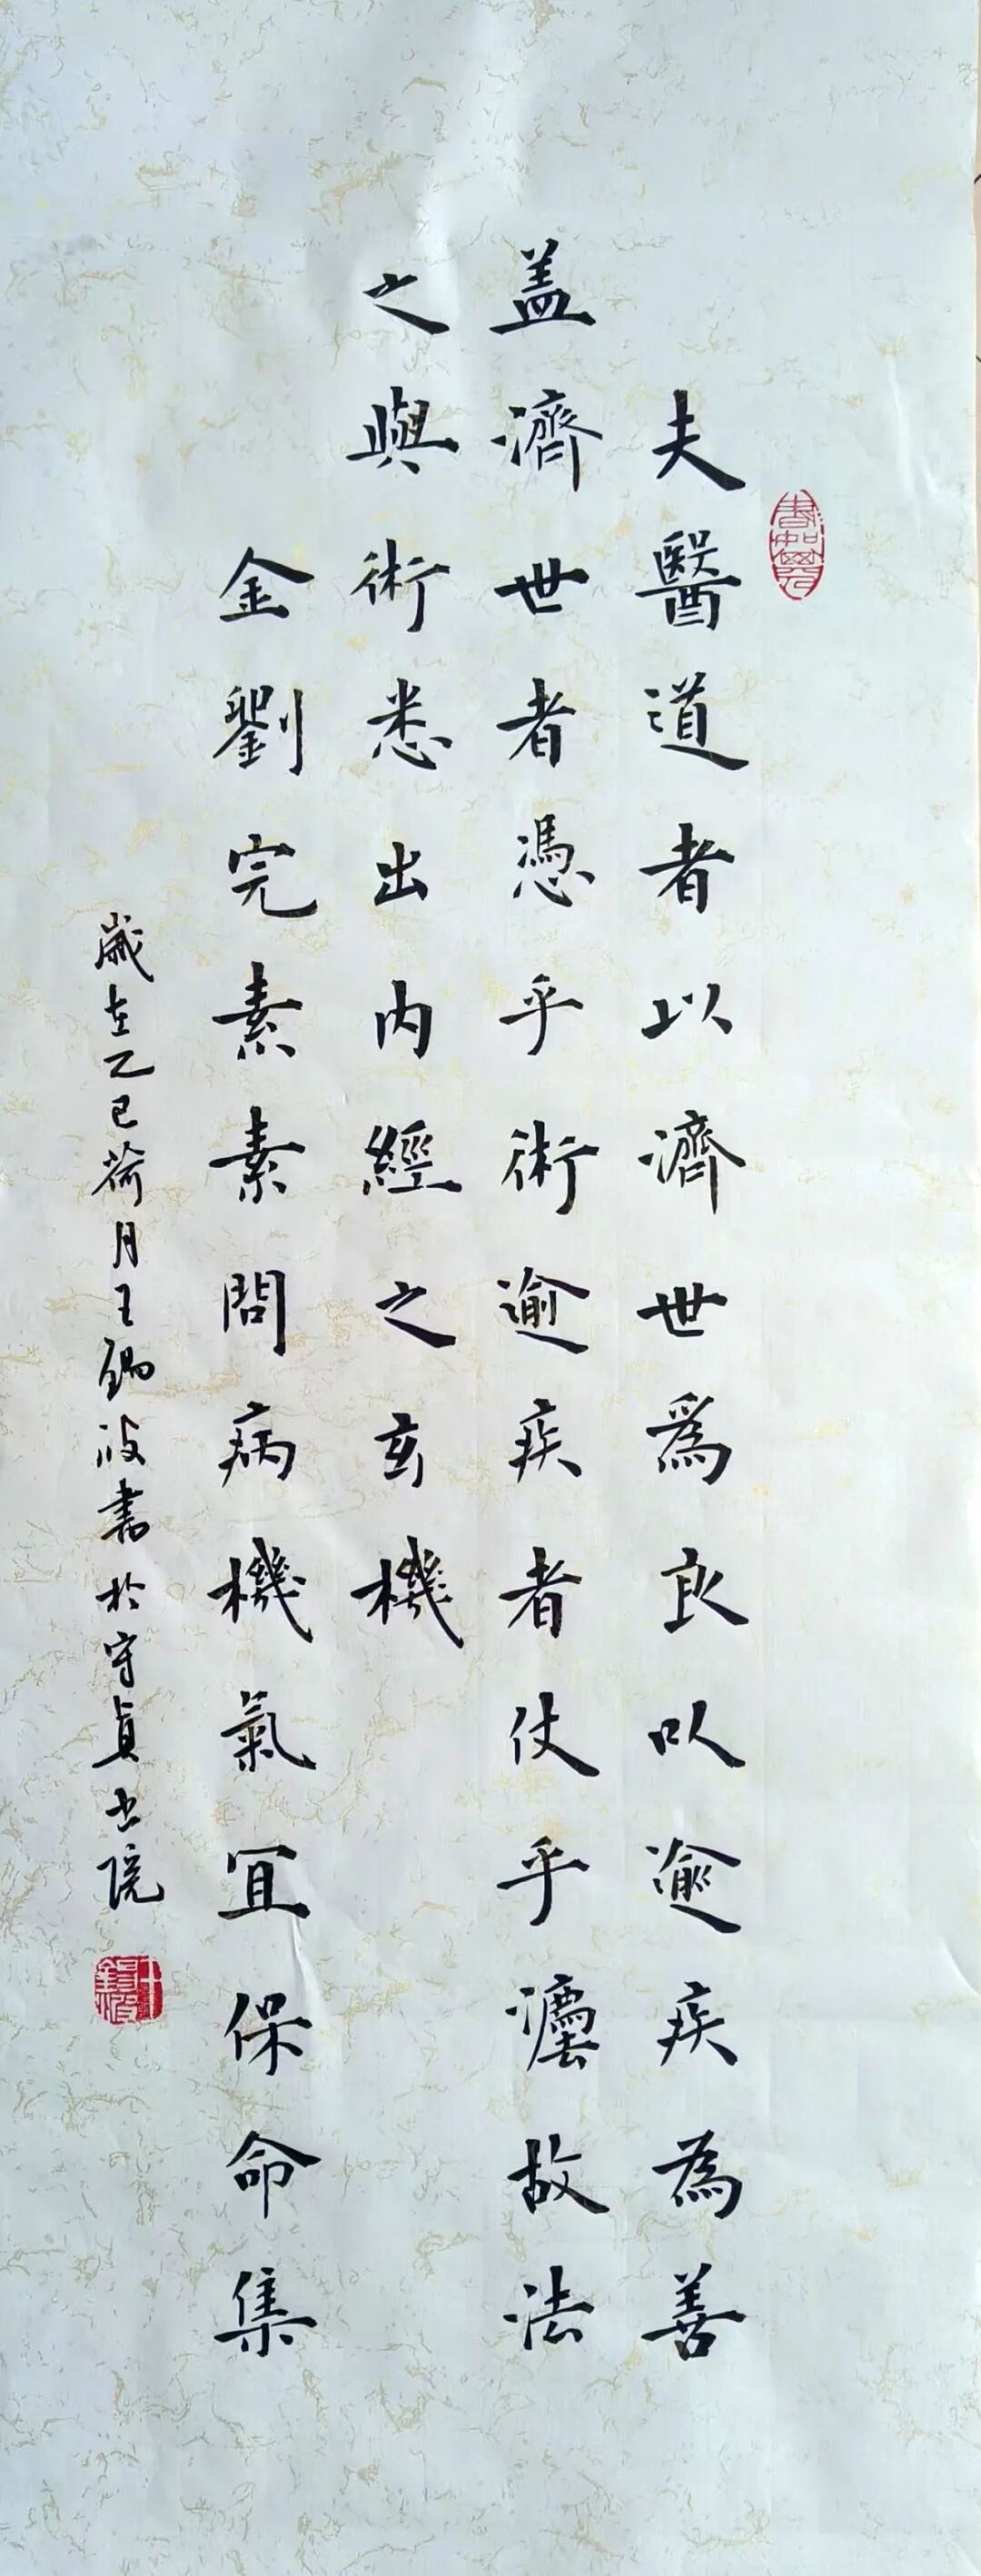 夫醫道者以濟世爲良以逾疾為善
盖濟世者憑乎術逾疾者仗乎灋故法
之與術悉出内經之玄機
金劉完素素問病機氣宜保命集
歲在乙巳荷月王錫波書於守貞书院